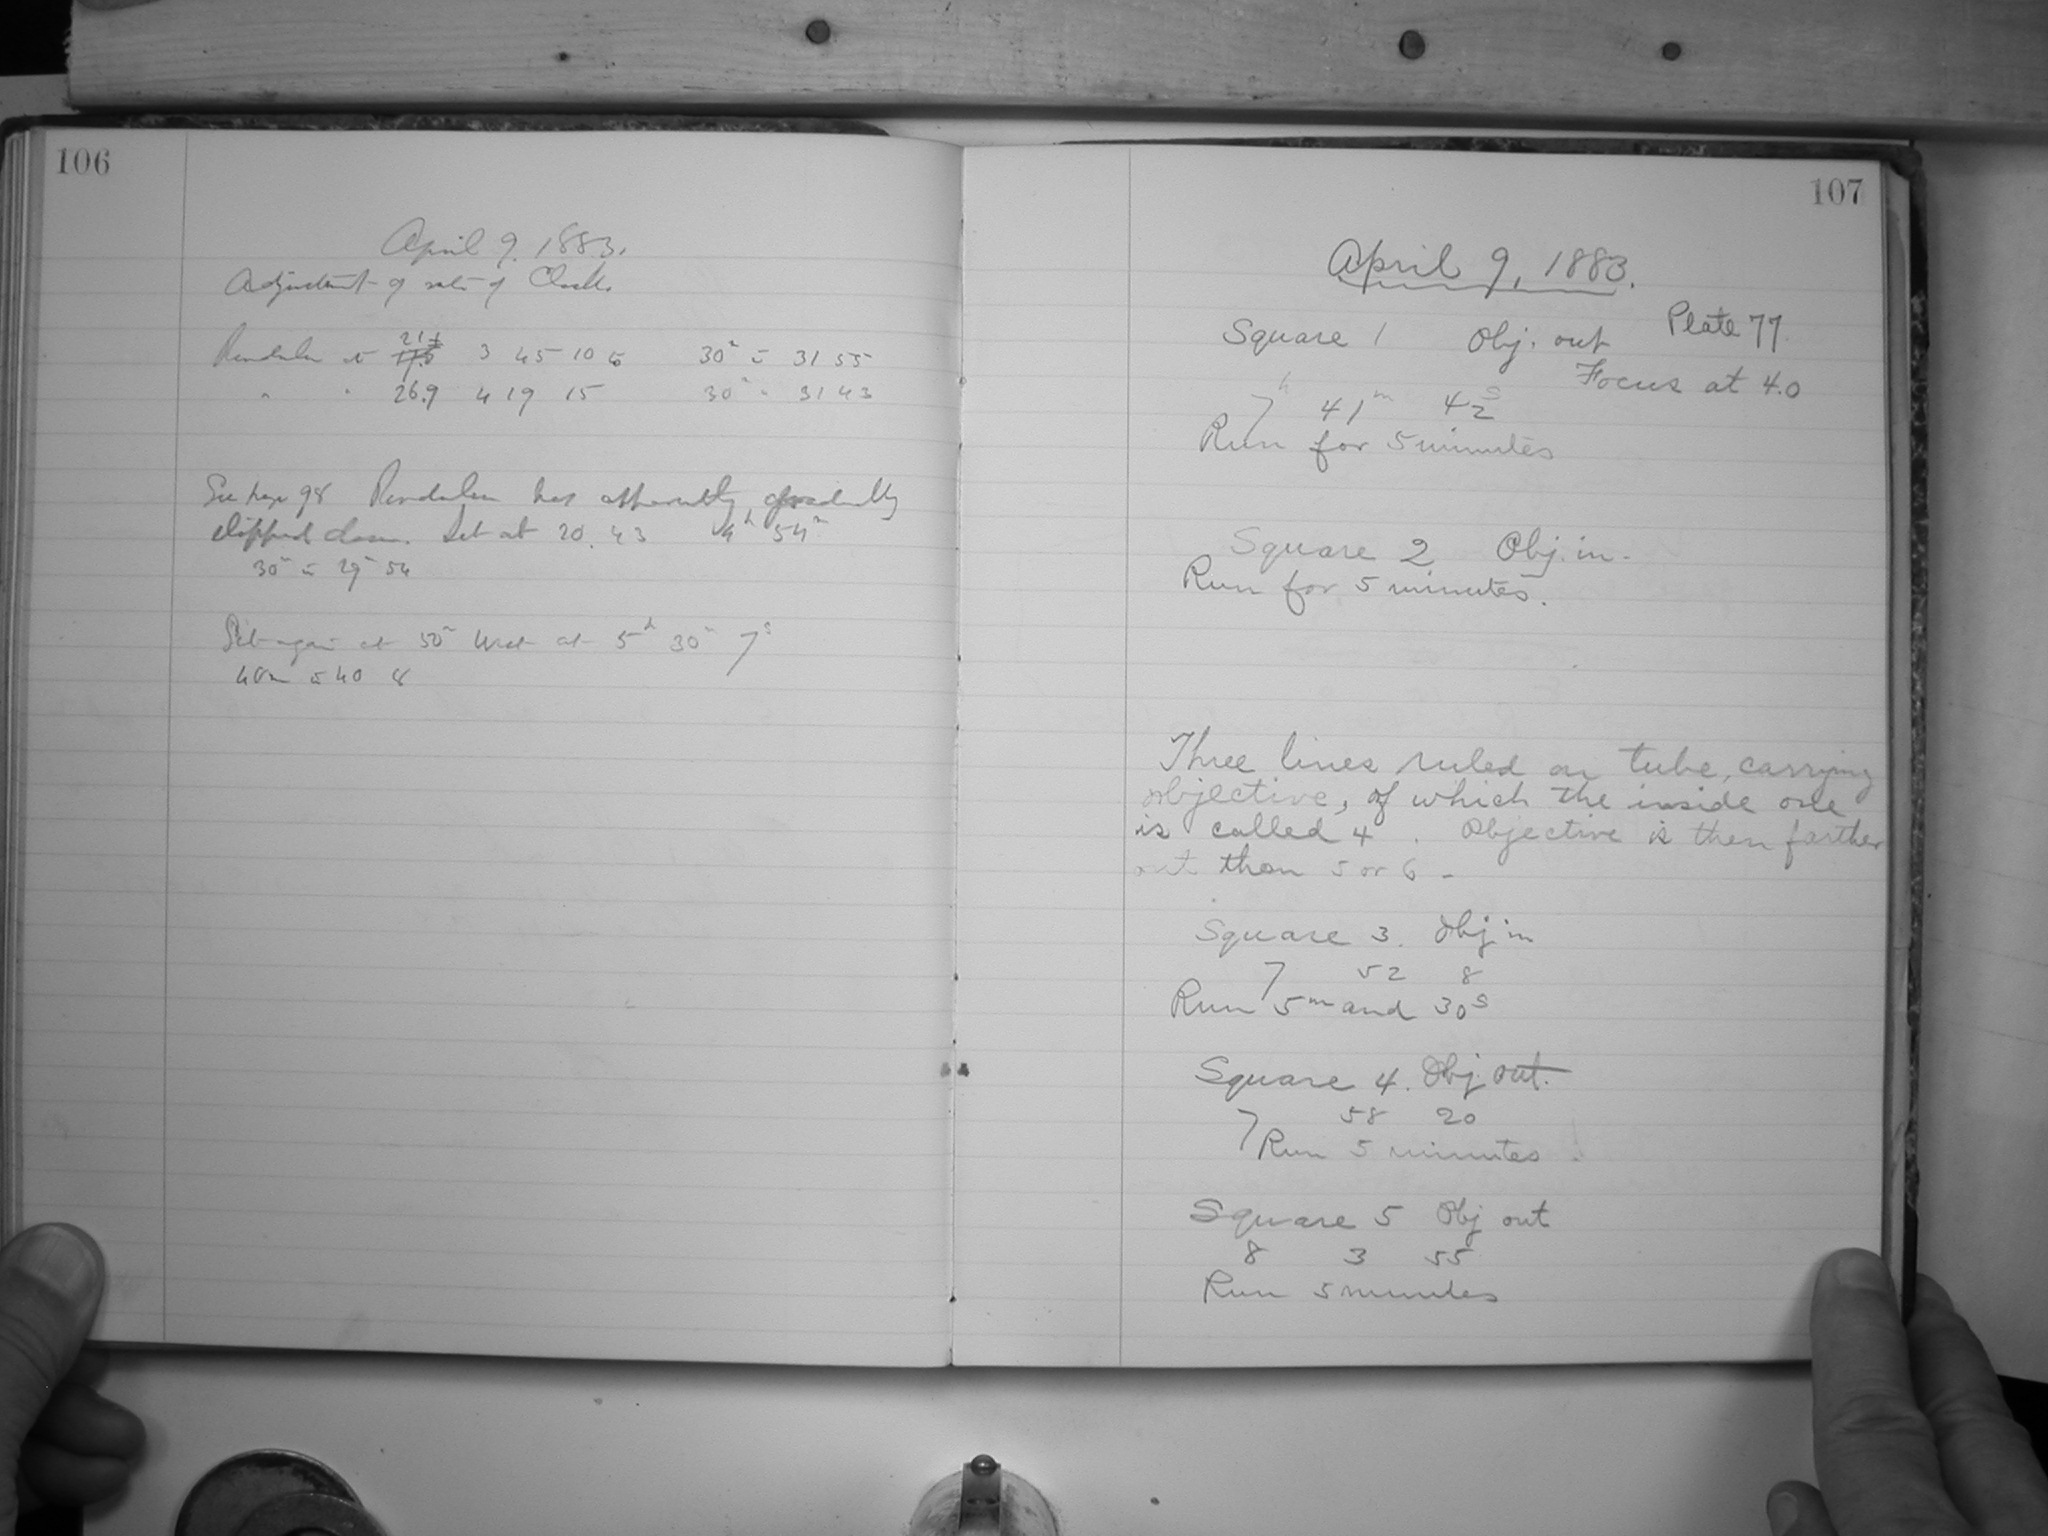 106
April 9. 1883.
Adjustment of rate of Clock.
Pendulum at 21.5 3 45 10 30m = 31 55
" " 26.9 4 19 15 30m = 31 43
See page 98 Pendulum has apparently, gradually
slipped down. Set at 20.43 4h 54m
30m = 29m 54
Set again at 50m at 5h 30m 7s
40m = 40 8
107
April 9, 1883.
Square 1 Obj. out Plate 77.
Focus at 4.0
7h 41m 42s
Run for 5 minutes
Square 2 Obj. in.
Run for 5 minutes.
Three lines ruled on tube, carrying
objective, of which the inside one
is called 4. Objective is then farther
out than 5 or 6 -
Square 3. Obj in
7 52 8
Run 5m and 30s
Square 4. Obj. out.
7 58 20
Run 5 minutes.
Square 5 Obj out
8 3 55
Run 5 minutes